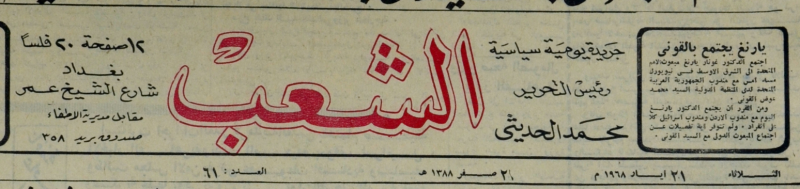 يارنغ يجتمع بالقوني
اجتمع الدكتور غونار يارنغ مبعوث الامم
المتحدة الى الشرق الاوسط في نيويورك
مساء امس مع مندوب الجمهورية العربية
المتحدة لدى المنظمة الدولية السيد محمد
عوض القوني .
ومن المقرر ان يجتمع الدكتور يارنغ
اليوم مع مندوب الاردن ومندوب اسرائيل كلا
على انفراد . ولم تتوفر اية تفصيلات عن
اجتماع المبعوث الدولي مع السيد القوني .
جريدة يومية سياسية
رئيس التحرير
محمد الحديثي
الشعب
١٢ صفحة ٢٠ فلساً
بغداد
شارع الشيخ عمر
مقابل مديرية الاطفاء
صندوق بريد ٣٥٨
الثلاثاء ٢١ اياد ١٩٦٨ م صفر ١٣٨٨ هـ العدد : ٦١